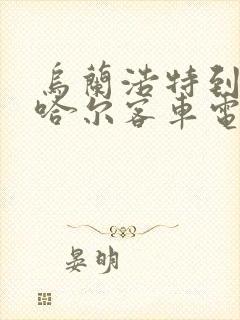 烏蘭浩特到
哈尔客車電
晏明